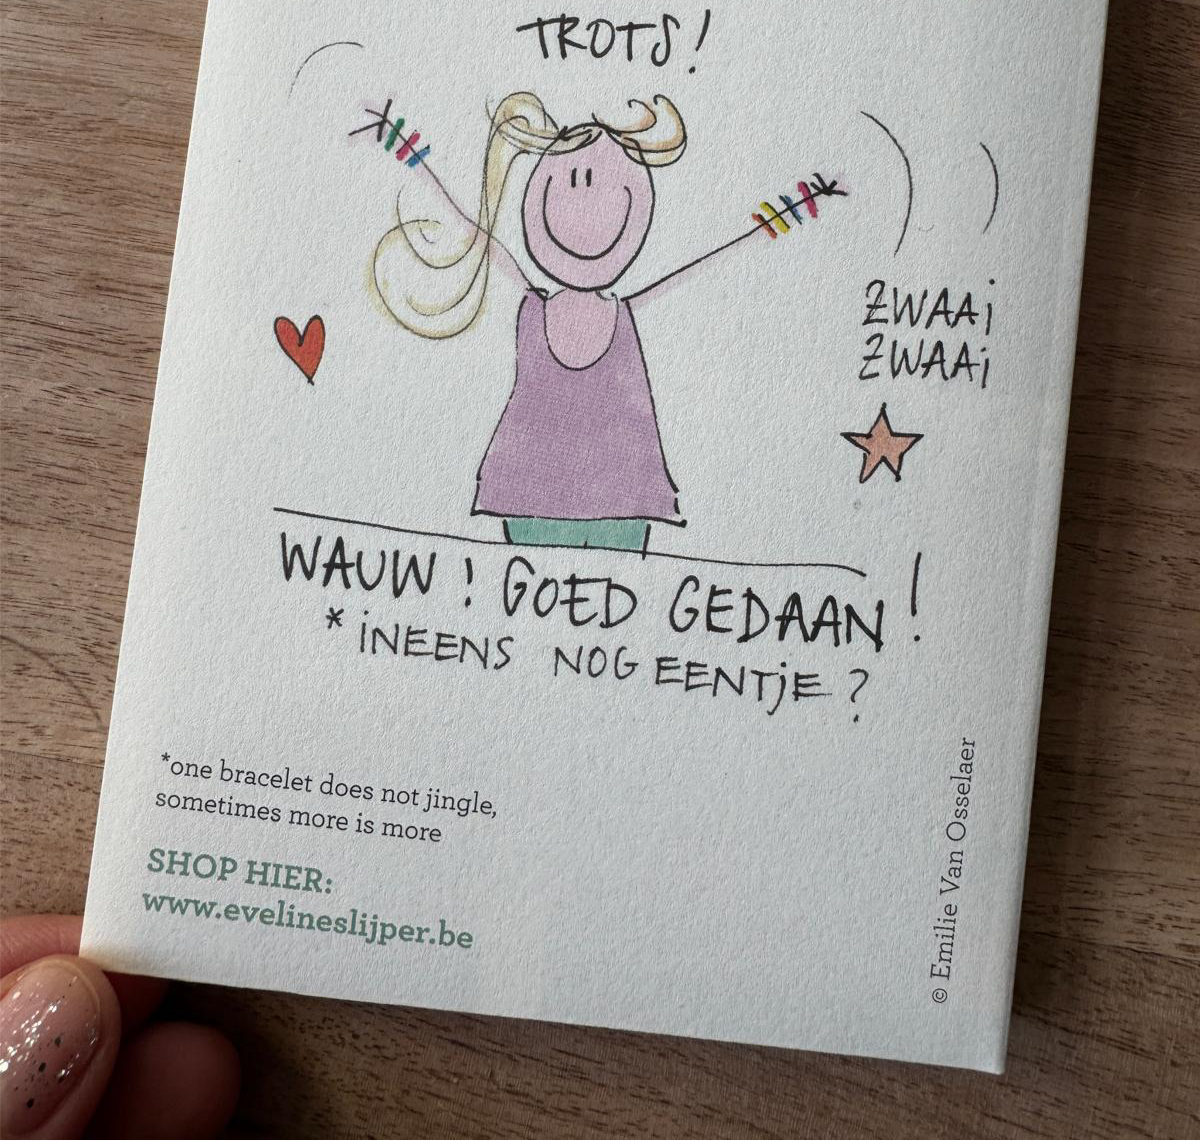 TROTS!
ZWAAi
ZWAAi
WAUW! GOED GEDAAN!
* iNEENS NOG EENTjE?
*one bracelet does not jingle,
sometimes more is more
SHOP HIER:
www.evelineslijper.be
© Emilie Van Osselaer